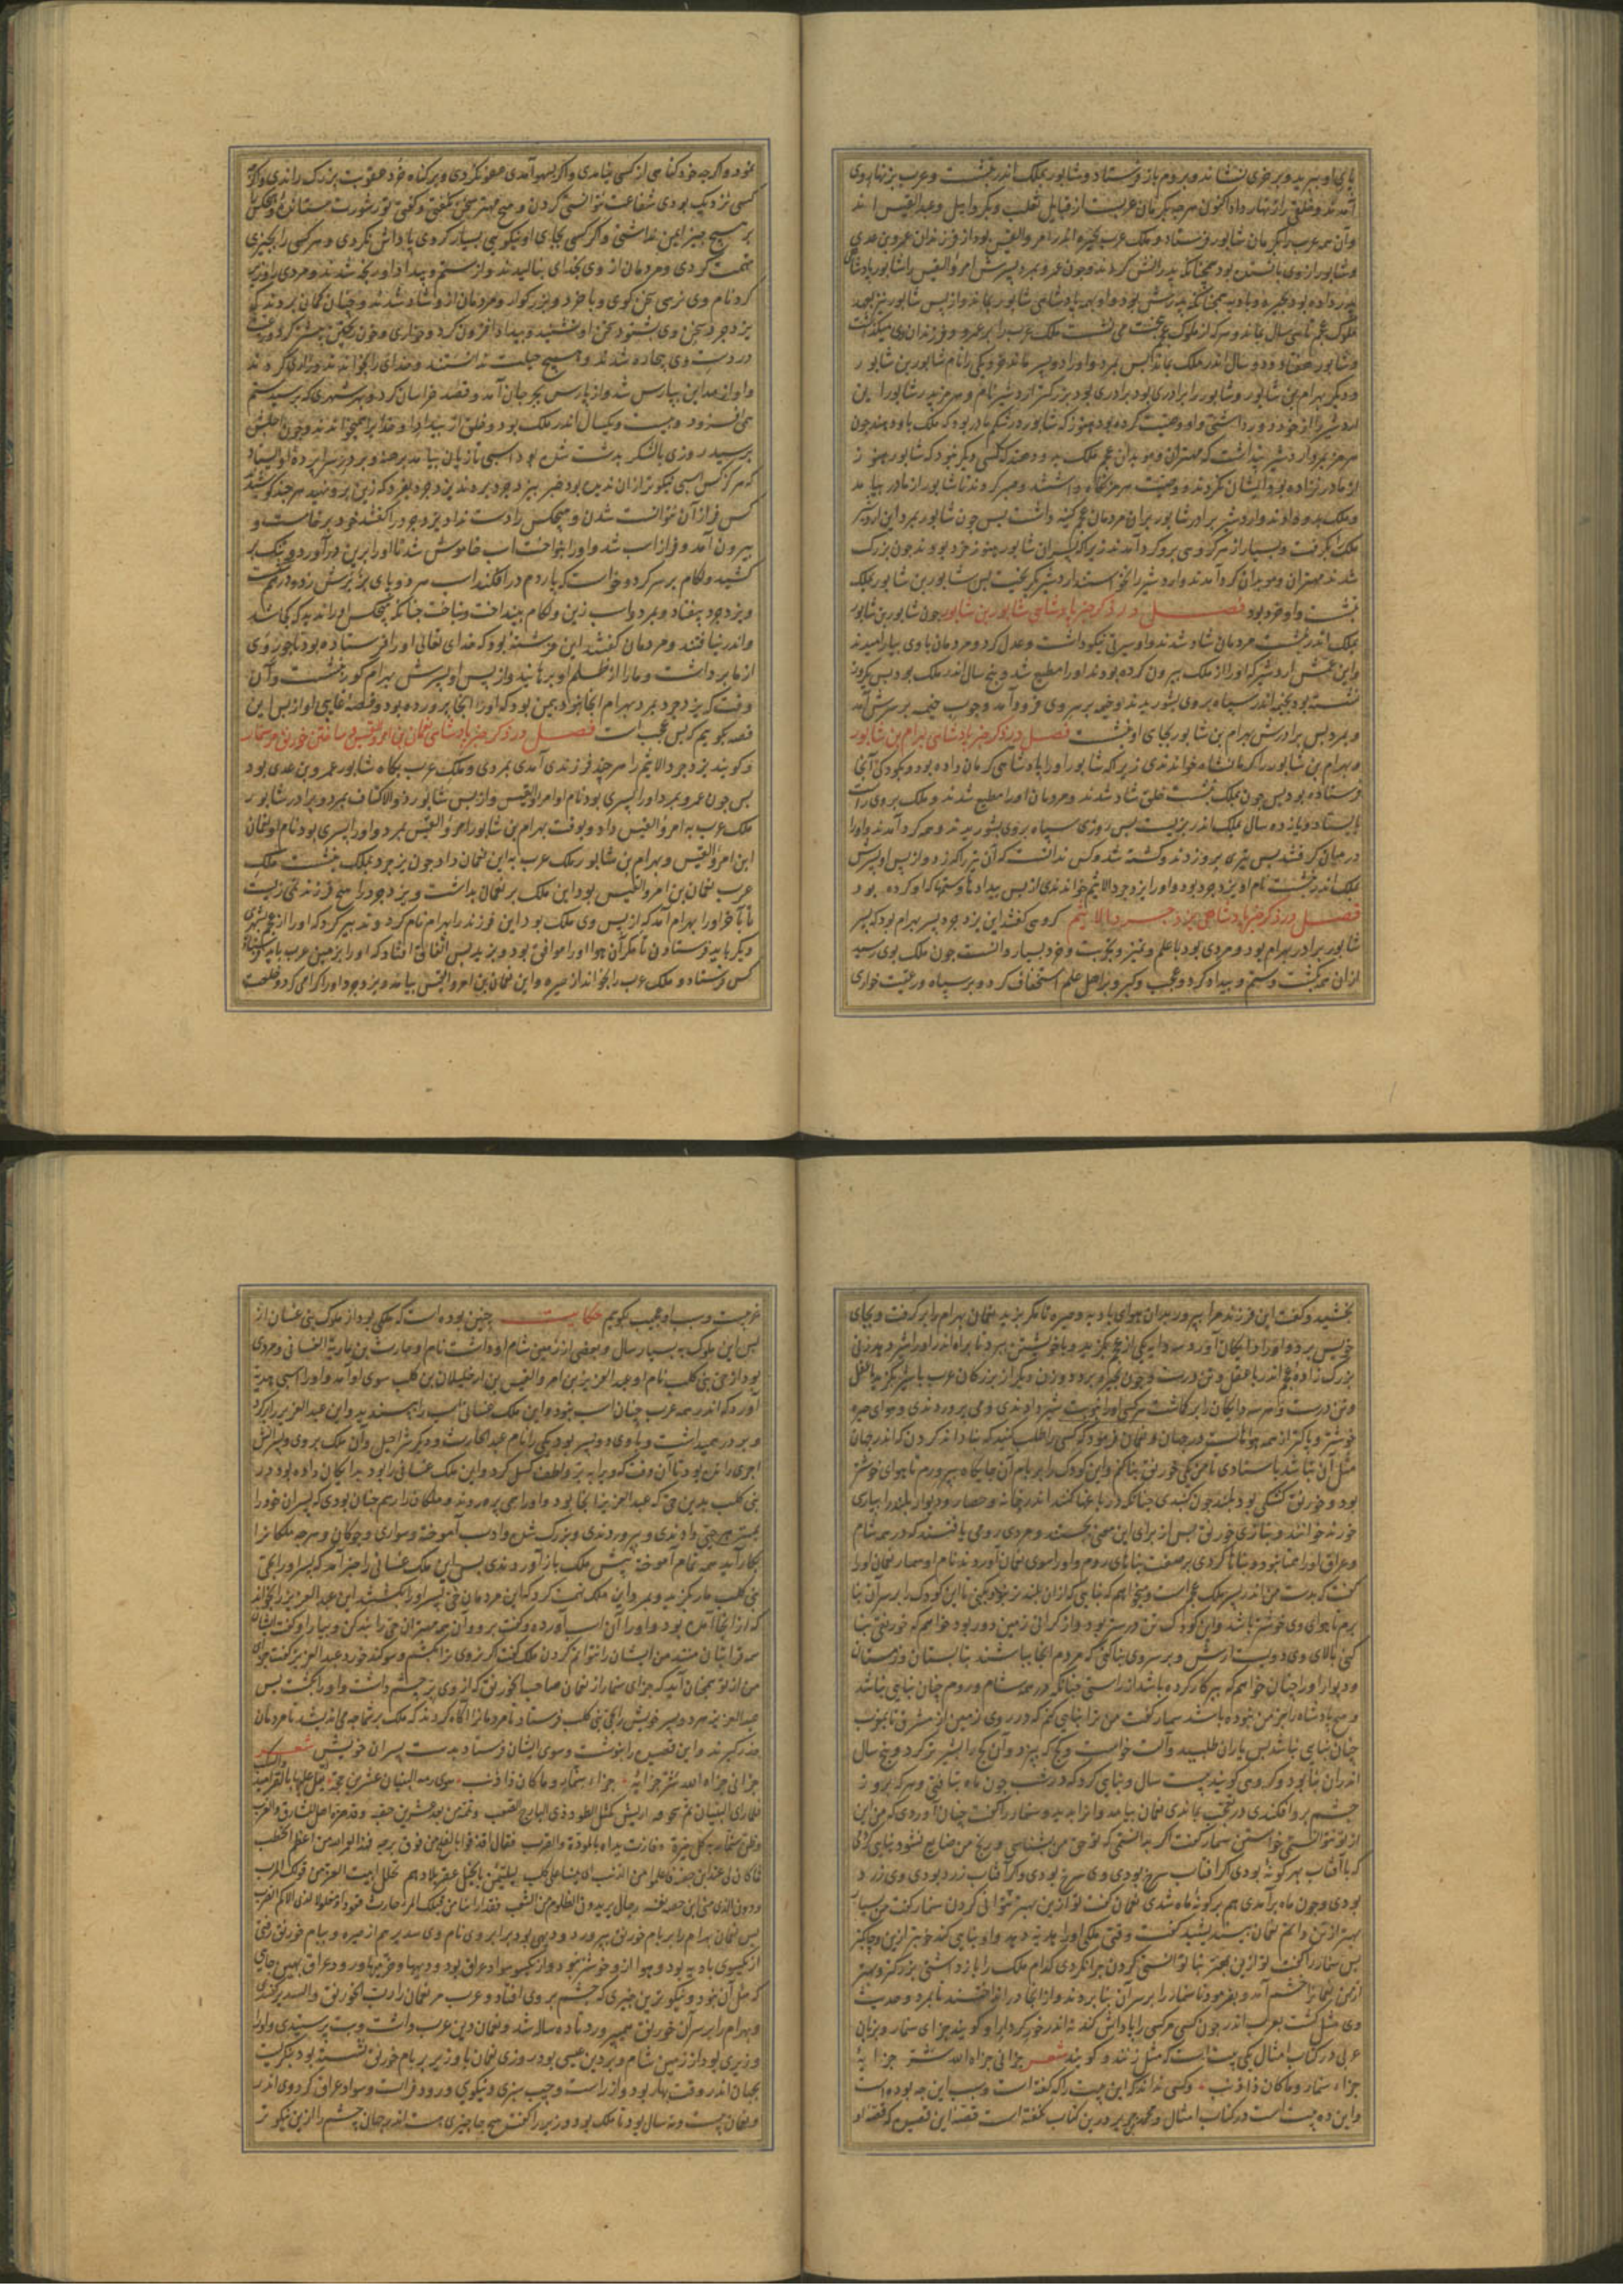 پای او ببرید و بر خری نشاند و بروم باز فرستاد و شاپور بملک اندر نشست و عرب بزنهار وی
آمدند و خلق را زنهار داد اکنون هر چه بکرمان عربست از قبایل تغلب و بکر وایل و عبد القیس اند
و آن همه عرب را بکرمان شاپور فرستاد و ملک عرب بحیره اندر امرو القیس بود از فرزندان عمرو بن عدی
و شاپور از وی بایستاده بود همچنانکه پدرانش کردند و چون عمرو بمرد پسرش امرؤ القیس را شاپور پادشاهی
پدر داده بود بحیره و بادیه همچنانکه پدرش بود و او بهمه پادشاهی شاپور بماند و از پس شاپور نیز بعهد
ملوک عجم تا سی سال بماند و هر که از ملوک عجم بتخت می نشست ملک عرب را بر عمرو و فرزندان وی میگذاشت
و شاپور هفتاد و دو سال اندر ملک بماند پس بمرد و او را دو پسر ماند خرد یکی را نام شاپور بن شاپور
و دیگر بهرام بن شاپور و شاپور را برادری بود برادری بود بزرگتر اردشیر نام و هرمز پدر شاپور این
اردشیر را از خود دور داشتی و او وصیت کرده بود هنوز که شاپور در شکم مادر بود که ملک باو دهند چون
هرمز بمرد اردشیر پنداشت که مهتران و موبدان عجم ملک بدو دهند که کسی دیگر نبود که شاپور هنوز
از مادر نزاده بود و ایشان نکردند و وصیت هرمز نگاه داشتند و صبر کردند تا شاپور از مادر بیامد
و ملک بدو دادند و اردشیر برادر شاپور بر آن مردمان عجم کینه داشت پس چون شاپور بمرد این اردشیر
ملک بگرفت و بسیار از هر گروهی برو گرد آمدند زیرا که پسران شاپور هنوز خرد بودند چون بزرگ
شدند مهتران و موبدان گرد آمدند و اردشیر را نخواستند اردشیر بگریخت پس شاپور بن شاپور بملک
نشست و او خرد بود فصل در ذکر خبر پادشاهی شاپور بن شاپور چون شاپور بن شاپور
بملک اندر نشست مردمان شاد شدند و او سیرتی نیکو داشت و عدل کرد و مردمان با وی بیارامیدند
و این عمش اردشیر که او را از ملک بیرون کرده بودند او را مطیع شد و پنج سال اندر ملک بود پس یکروز
نشسته بود بخیمه اندر سپاه بر وی بشوریدند و خیمه بر سر وی فرود آمد و چوب خیمه بر سرش آمد
و بمرد پس برادرش بهرام بن شاپور بجای او نشست فصل در ذکر خبر پادشاهی بهرام بن شاپور
و بهرام بن شاپور را کرمانشاه خواندندی زیرا که شاپور او را پادشاهی کرمان داده بود و بکودکی آنجا
فرستاده بود پس چون بملک بنشست خلق شاد شدند و مردمان او را مطیع شدند و ملک بر وی راست
بایستاد و یازده سال بملک اندر بزیست پس روزی سپاه بر وی بشوریدند و همه گرد آمدند و او را
در میان گرفتند پس تیری برو زدند و کشته شد و کس ندانست که آن تیر را که زد و از پس او پسرش
بملک اندر بنشست نام او یزدجرد بود و او را یزدجرد الاثیم خواندندی از بس بیداد و ستمها که او کرده بود
فصل در ذکر خبر پادشاهی یزدجرد الاثیم گروهی گفتند این یزدجرد پسر بهرام بود که پسر
شاپور برادر بهرام بود و مردی بود با علم و تمیز و تجربت و خرد بسیار دانست چون ملک بوی رسید
از آن همه بگشت و ستم و بیداد کرد و عجب و کبر و بر اهل علم استخفاف کرد و بر سپاه و رعیت خواری
نمود و اگر چه خرد گناهی از کسی بیامدی و اگر بسهو آمدی عفو نکردی و بر گناه خرد عقوبت بزرگ راندی و اگر
کسی نزدیک بودی شفاعت نتوانستی کردن و هیچ مهتر سخن نگفتی و گفتی تو رشوت بستانی و هیچکس را
بر هیچ چیز امین نداشتی و اگر کسی بجای او نیکویی بسیار کردی پاداش نکردی و هر کسی را بچیزی
تهمت کردی و مردمان از وی بخدای بنالیدند و از ستم و بیداد او رنجه شدند و مردی را وزیر
کرد نام وی نرسی سخن گوی و با خرد و بزرگوار و مردمان ازو شاد شدند و چنان گمان بردند که
یزدجرد سخن وی بشنود سخن او نشنید و بیداد افزون کرد و خواری و خون ریختن بیشتر کرد و رعیت
در دست وی بیچاره شدند و هیچ حیلت ندانستند و خدای را بخواندند و زاری کردند
و او از مداین بپارس شد و از پارس بجرجان آمد و قصد خراسان کرد و بهر شهری که برسید ستم
همی افزود و بیست و یکسال اندر ملک بود و خلق از بیداد او خدا را همیخواندند و چون اجلش
برسید روزی با لشکر بدشت شده بود اسبی تازیان بیامد برهنه و بر در سراپرده او بایستاد
که هرگز کس اسبی نیکوتر از آن ندیده بود خبر بیزدجرد بردند یزدجرد بفرمود که زین برو نهید هر چند کوشیدند
کس فراز آن نتوانست شدن و هیچکس را دست نداد یزدجرد را گفتند خود برخاست و
بیرون آمد و فراز اسب شد و او را بنواخت اسب خاموش شد تا او را بر این در آورد و تنگ بر
کشید و لگام بر سر کرد و خواست که پاردم در افکند اسب هر دو پای برا بر برش زد و در گذشت
و یزدجرد بیفتاد و بمرد و اسب زین و لگام بینداخت و بتاخت چنانکه هیچکس او را ندید که کجا شد
و اندر نیافتند و مردمان گفتند این فرشته بود که خدای تعالی او را فرستاده بود تا جور وی
از ما برداشت و ما را از ظلم او برهانید و از پس او پسرش بهرام گور بنشست و آن
وقت که یزدجرد بمرد بهرام آنجا نبود بیمن بود که او را آنجا پرورده بود و قصهٔ غایبی او از پس این
قصه بگوییم که بس عجب است فصل در ذکر خبر پادشاهی نعمان بن امرؤ القیس و ساختن خورنق مر سنمار
و گویند یزدجرد الاثیم را هر چند فرزندی آمدی بمردی و ملک عرب بگاه شاپور عمرو بن عدی بود
پس چون عمرو بمرد او را پسری بود نام او امرو القیس و از پس شاپور ذو الاکتاف بمرد و برادر شاپور
ملک عرب به امرؤ القیس داد و بوقت بهرام بن شاپور امرؤ القیس بمرد و او را پسری بود نام او نعمان
ابن امرؤ القیس و بهرام بن شاپور ملک عرب به این نعمان داد چون یزدجرد بملک بنشست ملک
عرب نعمان بن امرؤ القیس بود این ملک بر نعمان بداشت و یزدجرد را هیچ فرزند نمی زیست
تا بآخر او را بهرام آمد که از پس وی ملک بود این فرزند را بهرام نام کرد و تدبیر کرد که او را از عجم بشهری
دیگر باید فرستادن تا مگر آن هوا او را موافق بود و بزید پس اتفاق افتاد که او را بزمین عرب باید فرستاد
کس فرستاد و ملک عرب را بخواند از حیره و این نعمان بن امرؤ القیس بیامد و یزدجرد او را گرامی کرد و خلعت
بخشید و گفت این فرزند مرا بپرور بدان هوای بادیه و حیره تا مگر بزید نعمان بهرام را برگرفت و بجای
خویش برد و او را دایگان آورد سه دایه یکی از عجم بگزید و با خویشتن ببرد تا براه اندر او را شیر دهد زنی
بزرگ زاده عجم اندر با عقل و تن درست و چون بحیره برد دو زن دیگر از بزرگان عرب با شیر بگزید با عقل
و تن درست و هر سه دایگان را بر گماشت هر کسی او را بنوبت شیر دادندی و می پروردندی و هوای حیره
خوشتر و پاکتر از همه هواهاست در جهان و نعمان فرمود که کسی را طلب کنید که بنا داند کردن که اندر جهان
مثل آن نباشد با ستادی تا من یکی خورنق بنا کنم و این کودک را بر بام آن جایگاه بپرورم تا هوای خوشتر
بود و خورنق کشکی بود بلند چون گنبدی چنانکه در باغها کنند اندر خانه و حصار و دیوار بلند را بپارسی
خورنه خوانند و بتازی خورنق پس از برای این معنی بجستند و مردی رومی یافتند که در همه شام
و عراق او را همتا نبود و بناها کردی بر صفت بناهای روم و او را سوی نعمان آوردند نام او سنمار نعمان او را
گفت که بدست من اندر پسر ملک عجم است و میخواهم که بنایی که از آن بلند تر نبود بکنی تا این کودک را بر سر آن بنا
برم تا هوای وی خوشتر باشد و این کودک تن درستر بود و از گرانی زمین دور بود خواهم که خورنقی بنا
کنی بالای وی دویست ارش و بر سر وی بنا کنی که مردم آنجا بباشند بتابستان و زمستان
و دیوار او را چنان خواهم که پرگار کرده باشد از راستی چنانکه در همه شام و روم چنان بنایی نباشد
و هیچ پادشاه را جز من نبوده باشد سنمار گفت من ترا بنایی کنم که در روی زمین از مشرق تا بمغرب
چنان بنایی نباشد پس یاران طلبید و آلت خواست و گچ که بپزد و آن گچ را بشیر تر کرد و پنج سال
اندر آن بنا بود و گروهی گویند بیست سال و بنایی کرد که در شب چون ماه بتافتی و هر که بروز
چشم برو افکندی در تعجب بماندی نعمان بیامد و آنرا بدید و سنمار را گفت چنان آوردی که من این
از تو نتوانستی خواستن سنمار گفت اگر بدانستمی که تو حق من بشناسی و رنج من ضایع نشود بنایی کردمی
که با آفتاب بهر گونهٔ بودی اگر آفتاب سرخ بودی وی سرخ بودی و اگر آفتاب زرد بودی وی زرد
بودی و چون ماه برآمدی هم برگونه ماه شدی نعمان گفت تو ازین بهتر توانی کردن سنمار گفت من بسیار
بهتر ازین دانم نعمان بیندیشید گفت وقتی ملکی او را هدیه دهد و او بنایی کند خوبتر ازین و پاکتر
پس سنمار را گفت تو ازین بهتر بنا توانستی کردن چرا نکردی کدام ملک را باز داشتی بزرگتر و بهتر
از من نعمان را خشم آمد و بفرمود تا سنمار را بر سر آن بنا بردند و از آنجا در انداختند تا بمرد و حدیث
وی مثل گشت بعرب اندر چون کسی مر کسی را پاداش کند نه اندر خور کردار او گویند جزای سنمار و بزبان
عربی در کتاب امثال یکی بیت است که مثل زنند و گویند شعر جزانی جزاه الله شر جزایهٖ
جزاء سنمار و ما کان ذا ذنب و کسی نداند که این بیت را که گفته است و سبب این چه بوده است
و این ده بیت است در کتاب امثال و محمد جریر درین کتاب نگفته است قصهٔ این قصیده که قصهٔ او
غریبست و سبب او عجب بگویم حکایت چنین بوده است که ملکی بود از ملوک بنی غسان از
پس این ملوک به بسیار سال و بعضی از زمین شام او داشت نام او حارث بن ماریة الغسانی و مردی
بود از حی بنی کلب نام او عبد العزیز بن امرو القیس بن از خلیلان بن کلب سوی او آمد و او را اسبی هدیه
آورد که اندر همه عرب چنان اسب نبود و این ملک غسانی اسب را بپسندید و این عبد العزیز را بزرگ کرد
و بر در همیداشت و با وی دو پسر بود یکی را نام عبد الحارث و دیگر شراحیل و آن ملک بر وی و پسرانش
و این ملک غسانی را بود بدایگان داده بود در
بنی کلب بدین حی که عبد العزیز از آنجا بود و او را همی پروردند و ملکان را رسم چنان بودی که پسران خود را
بمهتر هر حی دادندی و بپروردندی و بزرگ شدی و ادب آموخته و سواری و چوگان و هر چه ملکانرا
بکار آید همه تمام آموخته پیش ملک باز آوردندی پس این ملک غسانی را خبر آمد که پسر او را بحی
بنی کلب مار بگزید و بمرد این ملک تهمت کرد که این مردمان حی پسر او را بکشتند این عبد العزیز را بخواند
که از آنجا آمده بود و او را آن اسب آورده و گفت برو و آن همه مهتران حی را بند کن و بیار او گفت ایشان
همه قرابتان منند من ایشان را نتوانم کردن ملک گفت اگر نروی ترا بکشم و سوگند خورد عبد العزیز گفت جزای
من از تو همچنان آمد که جزای سنمار از نعمان صاحب الخورنق که از وی بتر چشم داشت و او را بکشت پس
عبد العزیز هر دو پسر خویش را بحی بنی کلب فرستاد تا مردمانرا آگاه کردند که ملک بر شما چه می اندیشد تا مردمان
حذر گیرند و این قصیده را بنوشت و سوی ایشان فرستاد بدست پسران خویش شعر
جزانی جزاه الله شر جزایهٖ جزاء سنمار و ما کان ذا ذنب سوی رمه البنیان عشرین حجة یعل علیها بالقرامید والسکب
فلما رای البنیان تم سحوقه و آض کمثل الطود ذی الباذخ الصعب
وظن سنمار به کل حبرة و فازت یداه بالمودة والقرب فقال اقذفوا بالعلج من فوق برجه فهذا لعمر الله من اعظم الخطب
پس نعمان بهرام را بر بام خورنق بپرورد و دیهی بود برابر وی نام وی سدیر هم از حیره و بام خورنق رفتی
از یکسوی بادیه بود و هوا ازو خوشتر نبود و از یکسو سواد عراق بود و دیهها و خرماها و رود عراق بهیچ جای
که مثل آن نبود و نیکوترین چیزی که چشم بر وی افتاد و عرب مر نعمان را رب الخورنق والسدیر گفتندی
و بهرام را بر سر آن خورنق همیپرورد تا ده ساله شد و نعمان دین عرب داشت و بت پرستیدی و او را
وزیری بود از زمین شام و بر دین عیسی بود روزی نعمان با وزیر بر بام خورنق نشسته بود بنگریست
بجهان اندر وقت بهار بود و از راست و چپ سبزی و نیکویی و رود فرات و سواد عراق گرد وی اندر
و نعمان بیست و نه سال بود تا ملک بود وزیر را گفت هیچ جا چیزی هست اندر جهان چشم را ازین نیکوتر